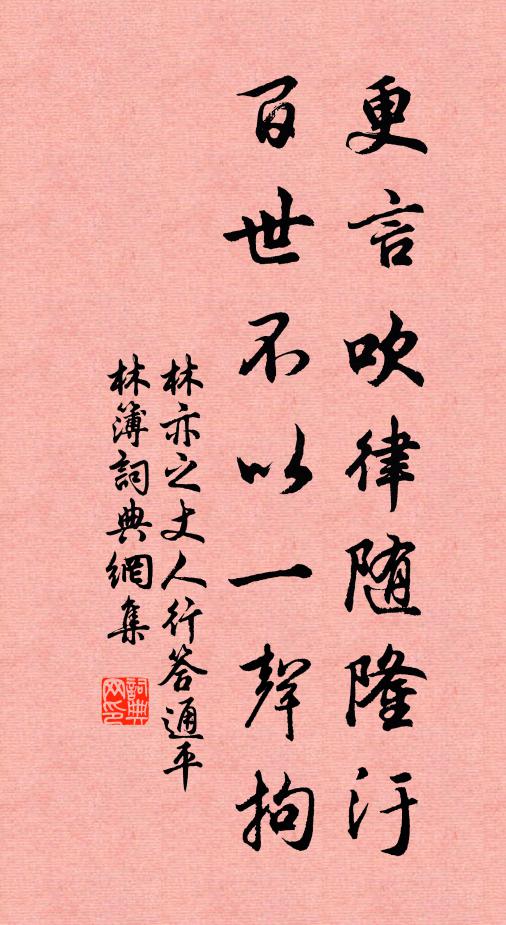 更言吹律随隆汙
百世不以一聲拘
林亦之丈人行答通平
林簿詞典網集
詞典網印